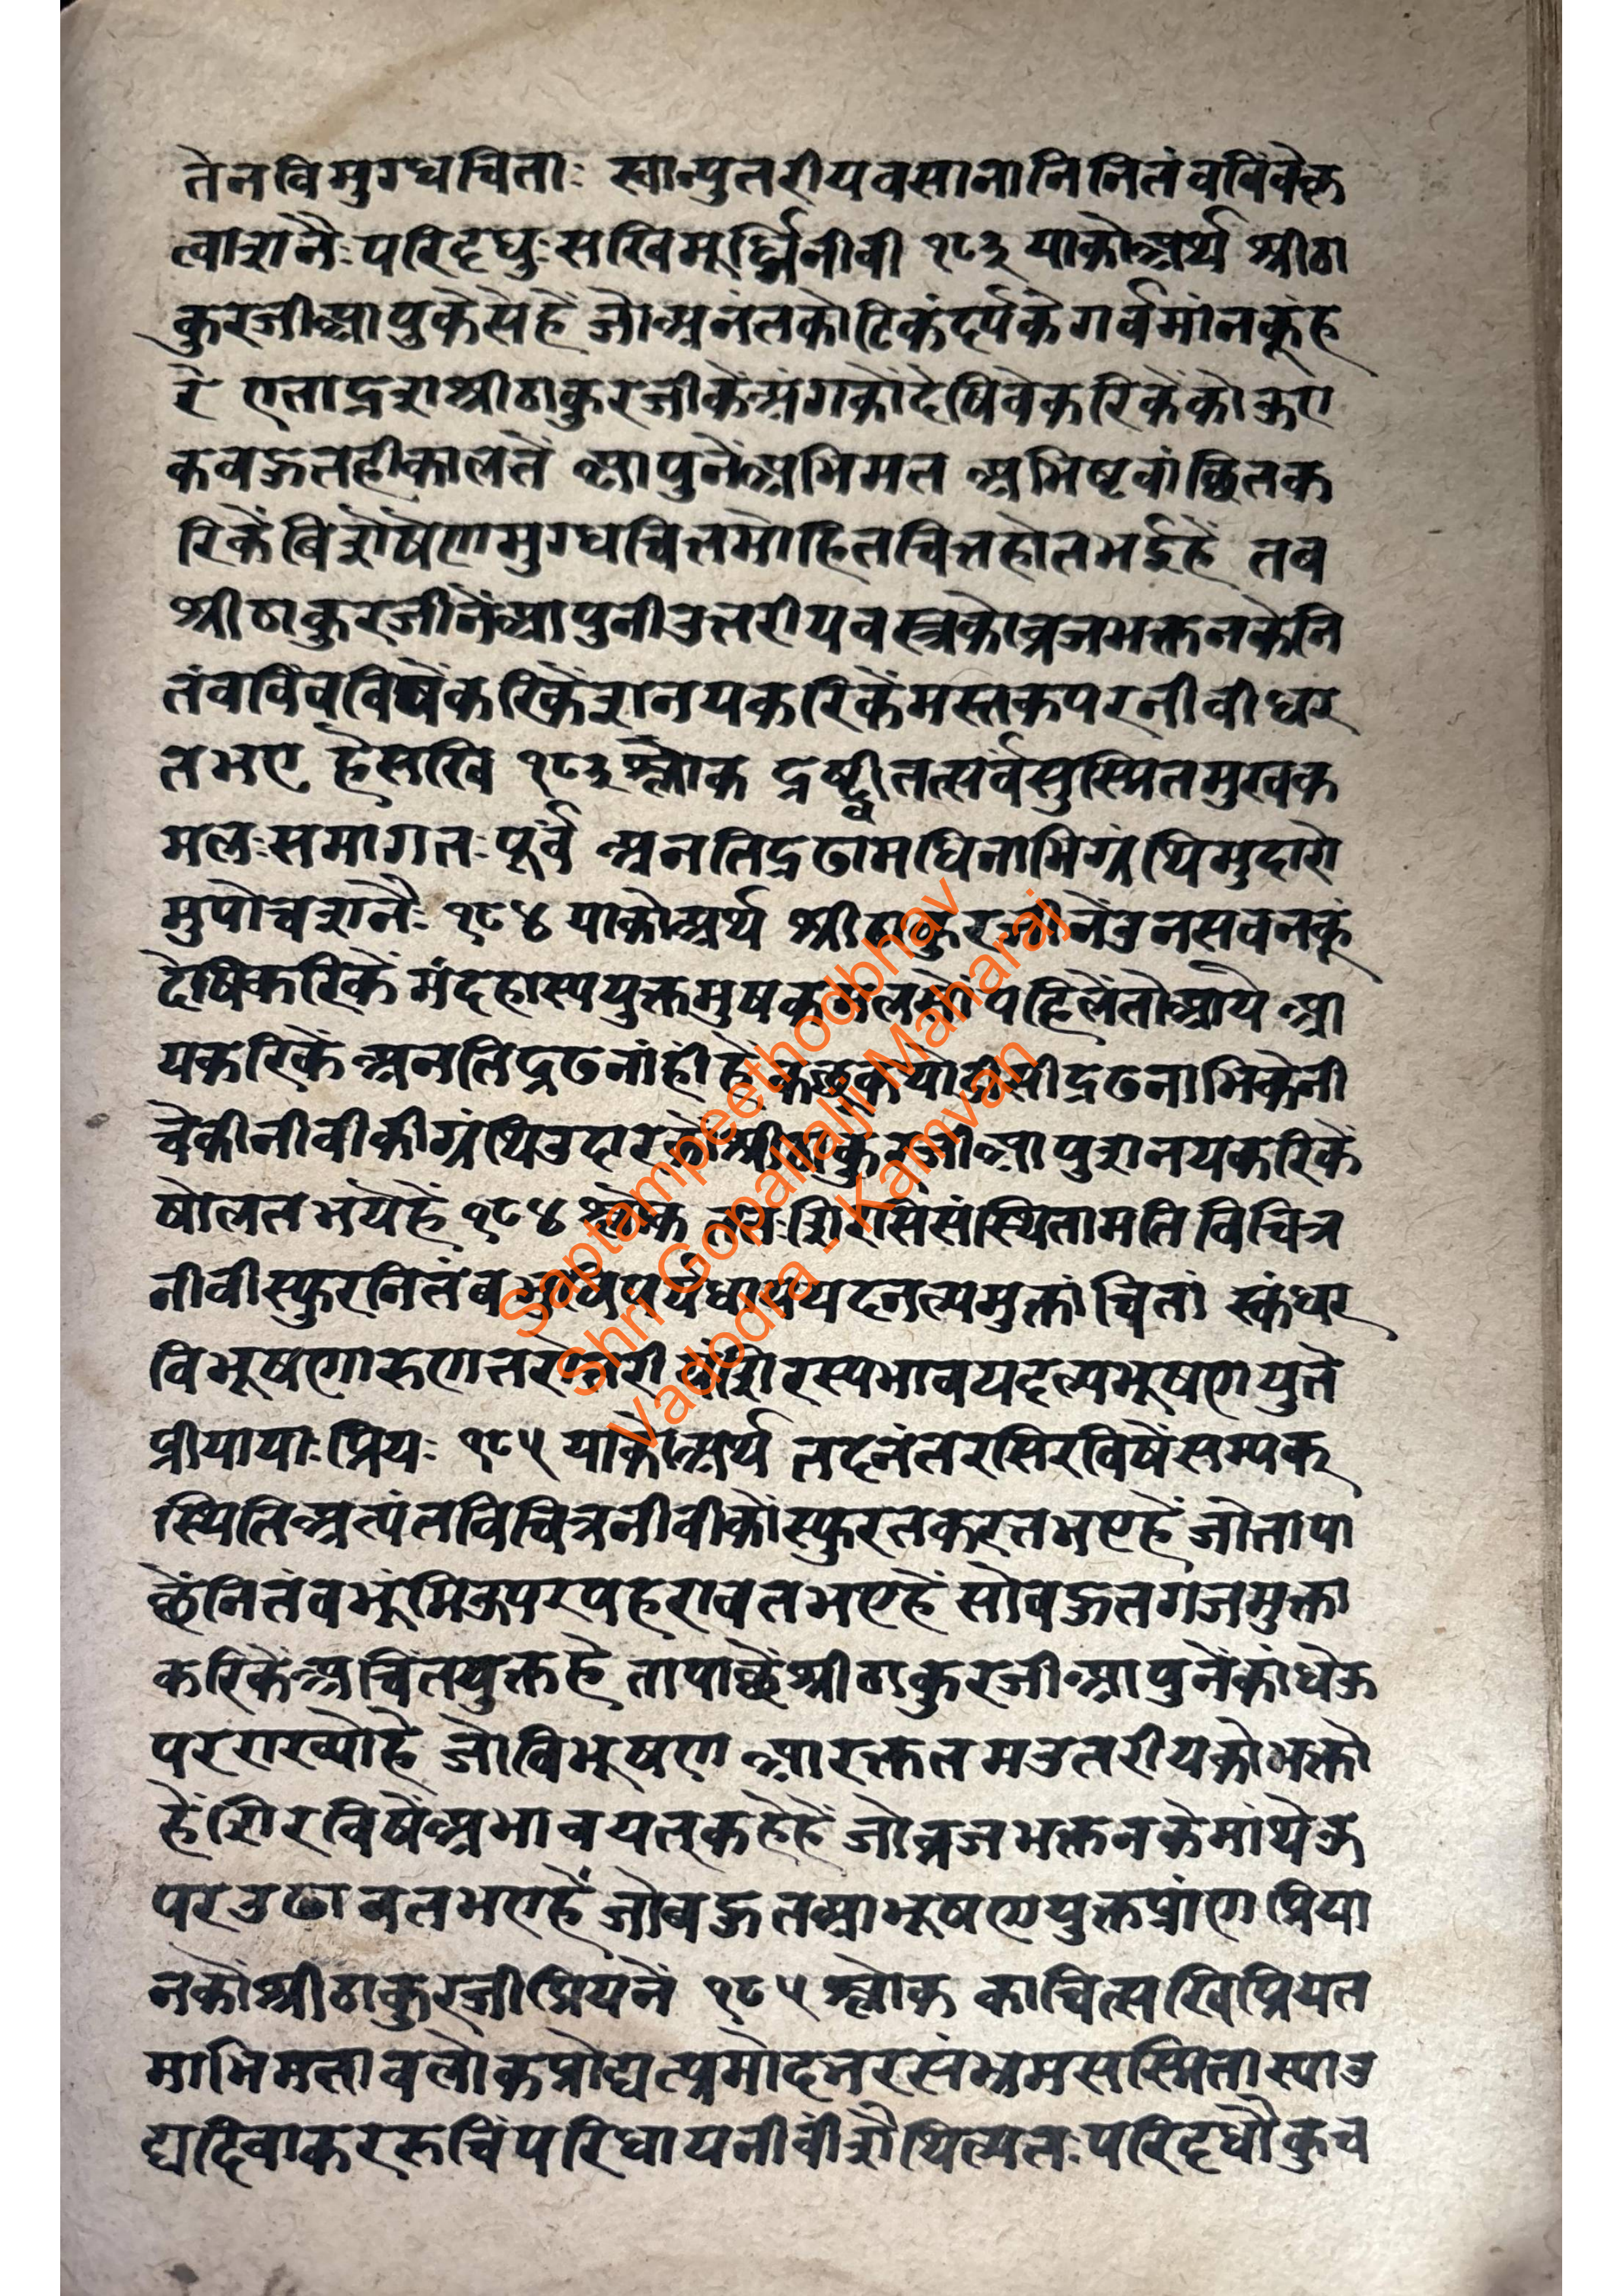 तेनविमुग्धचिताः स्वान्पुतरीयवसानानिनितंवविंवेकृ
त्वाशनैःपरिदृधुःसखिमूर्द्ध्निनीवी १८३ याकोअर्थ श्रीठा
कुरजीआपुकैसेहें जोअनंतकोटिकंदर्पकेगर्वमांनकूंह
रे एताद्रशश्रीठाकुरजीकेअंगकोंदेषिवेकरिकेंकोऊए
कवऊतहीकालतें आपुनेंअभिमत अभिष्टवांछितक
रिकेंविशेषेंणमुग्धचित्तमोहितचित्तहोतभईहें तव
श्रीठाकुरजीनेंआपुनीउत्तरीयवस्त्रकोव्रजभक्तनकेनि
तंवविंवविषेंकरिकेंशनयकरिकेंमस्तकपरनीवीधर
तभए हेसखि १८३ श्लोक द्रष्ट्वीतत्सर्वसुस्मितमुखक
मलःसमागतःपूर्व अनतिद्रढामधिनाभिग्रंथिमुदारो
मुपोच्चशनैः १८४ याकोअर्थ श्रीठाकुरजीनेंउनसवनकूं
देषिकरिकें मंदहास्ययुक्तमुषकमलसों पहिलेंतोआये आ
यकरिकें अनतिद्रढनांहीं हें कछुक द्रढनाभिकेनी
चेकीनीवीकीग्रंथिउदार श्रीठाकुरजीआपुशनयकरिकें
षोलतभयेहें १८४ श्लोक ततःशिरसिसंस्थितामतिविचित्र
नीवीस्फुरनितंव मुक्तांचितां स्कंधर
विभूषणारुण शिरस्यभावयदल्पभूषणयुते
प्रीयायाःप्रियः १८५ याकोअर्थ तदनंतरसिरविषेंसम्यक्
स्थितिअत्यंतविचित्रनीवीकोंस्फुरतकरतभएहें जोतापा
छेंनितंवभूंमिऊपरपहरावतभएहें सोवऊतगजमुक्ता
करिकेंअचिंतयुक्तहे तापाछेंश्रीठाकुरजीआपुनेंकांधेऊ
परराख्योहे जोविभूषण आरक्ततमउतरीयकोभक्तो
हेंशिरविषेंअभावयत्कहेहें जोव्रजभक्तनकेमांथेऊ
परउढावतभएहें जोवऊतआभूषणयुक्तप्रांणप्रिया
नकोंश्रीठाकुरजीप्रियनें १८५ श्लोक काचित्सखिप्रियत
माभिमतावलोकप्रोद्यत्प्रमोदनरसंभ्रमसस्मितास्याउ
द्यदिवाकररुचिंपरिधायनीवींशैथिल्यतःपरिदृधौकुच